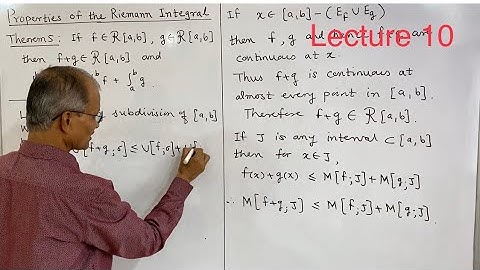 Properties of the Riemann Integral
Theorems: If f ∈ R[a,b], g ∈ R[a,b]
then f+g ∈ R[a,b] and
∫ f + ∫ₐᵇ g.
subdivision of [a,b]
[f+g;σ] ≤ U[f;σ]+U[
If x ∈ [a,b] − (E_f ∪ E_g)
then f, g and hence f+g are
continuous at x.
Thus f+g is continuous at
almost every point in [a,b].
Therefore f+g ∈ R[a,b].
If J is any interval ⊂ [a,b]
then for x ∈ J,
f(x)+g(x) ≤ M[f;J]+M[g;J]
∴ M[f+g;J] ≤ M[f;J]+M[g;J].
Lecture 10